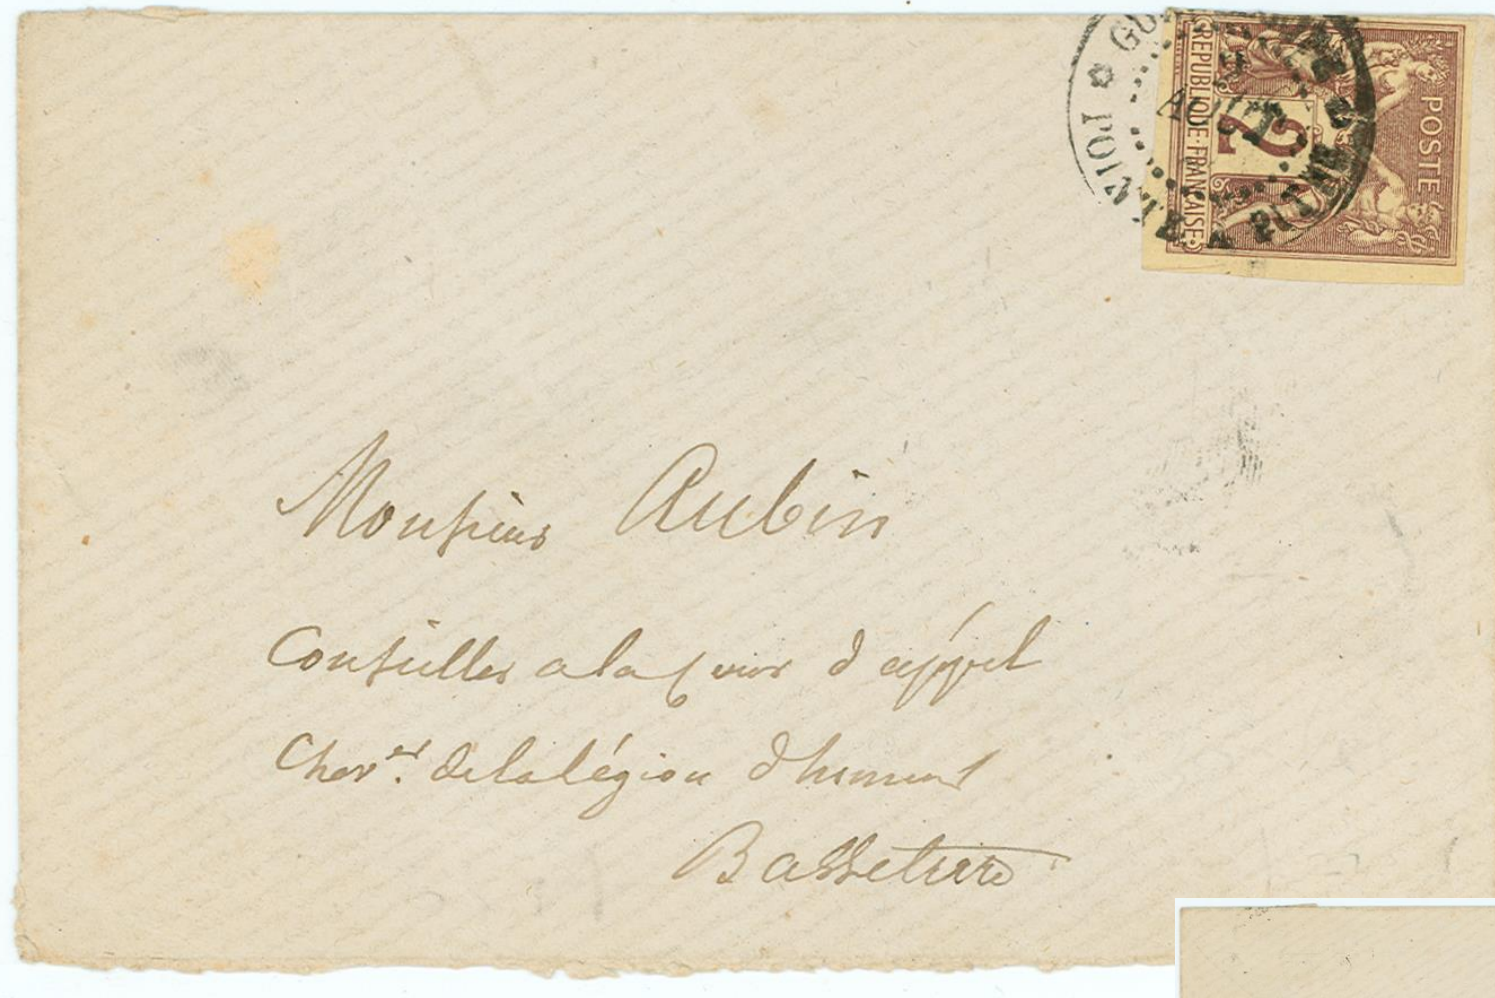 POSTE
2
REPUBLIQUE FRANCAISE
POINTE A PITRE
Monsieur Aubin
Conseiller a la Cour d'appel
Chev.er de la légion d'honneur
Basseterre